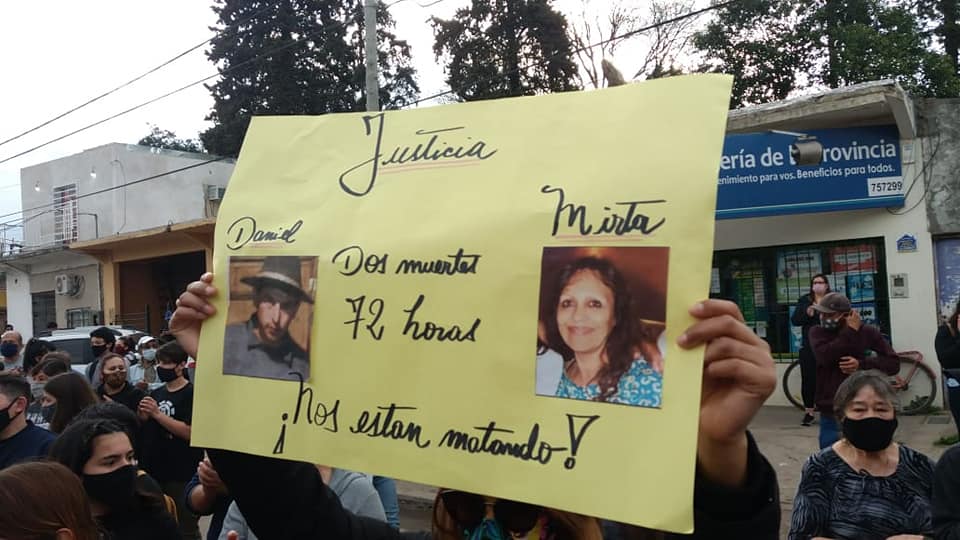 Justicia
Daniel
Mirta
Dos muertes
72 horas
¡Nos estan matando!
ería de la Provincia
enimiento para vos. Beneficios para todos.
757299